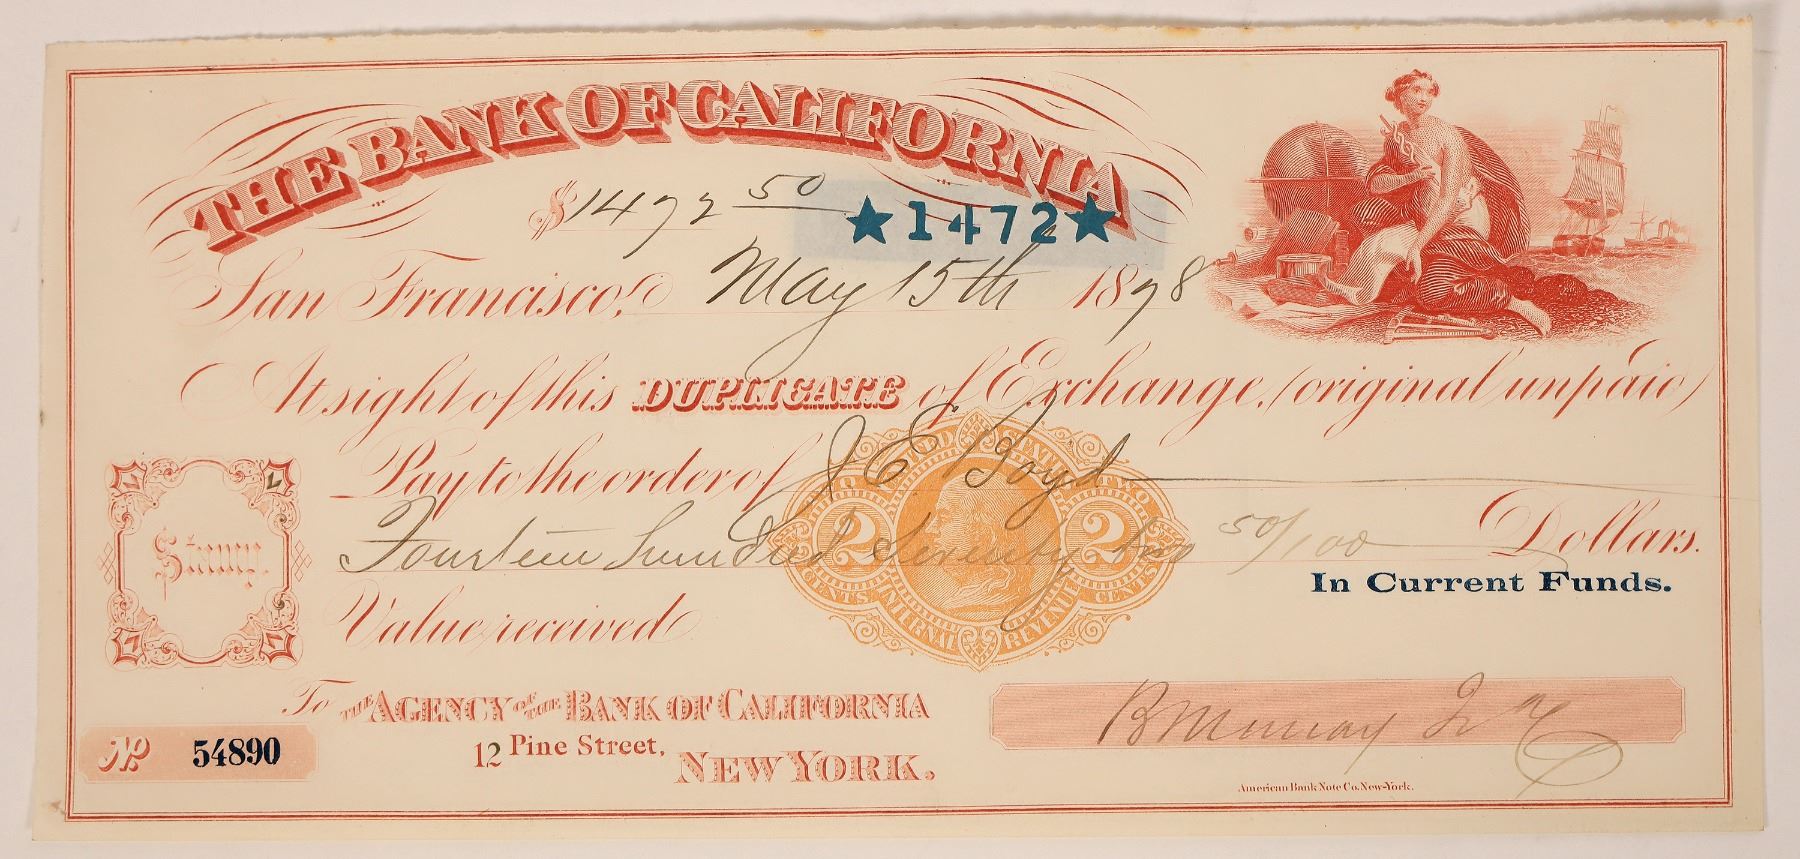 THE BANK OF CALIFORNIA
$1472 50 ★1472★
San Francisco, May 15th 1878
At sight of this DUPLICATE of Exchange, (original unpaid)
Pay to the order of J E Boyd
Fourteen hundred Seventy two 50/100 Dollars.
In Current Funds.
UNITED STATES
TWO 2 CENTS
TWO 2 CENTS
INTERNAL REVENUE
Stamp.
Value received
To THE AGENCY OF THE BANK OF CALIFORNIA
12 Pine Street,
NEW YORK.
No 54890
B Murray Jr
American Bank Note Co. New-York.